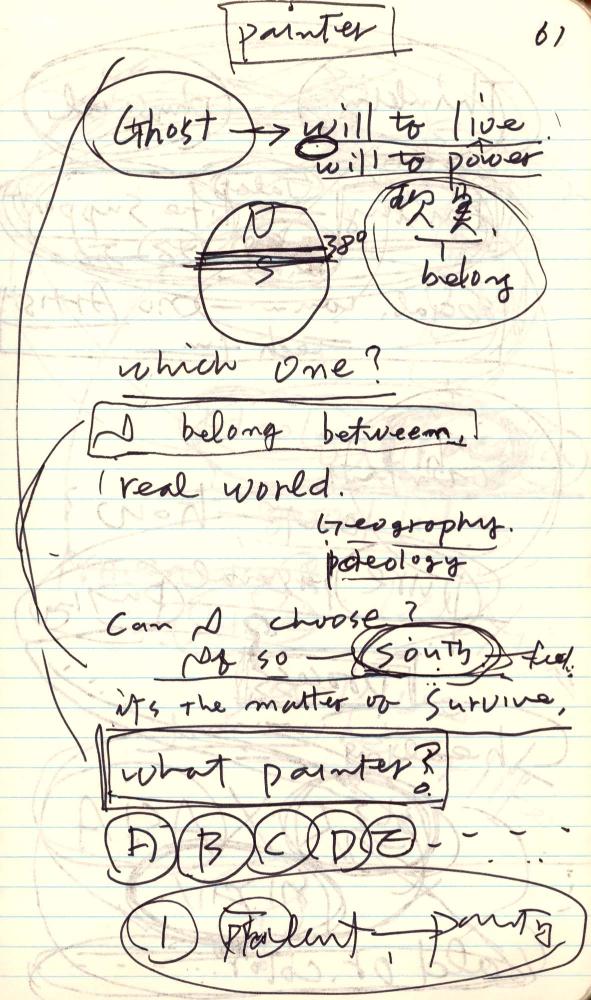 painter
61
Ghost → will to live.
will to power
N
38°
S
belong
which one?
I belong betweem,
real world.
Geography.
Can I choose?
If so — South —
it's the matter of Survive,
what painter?
A B C D E - - - -
1 talent —